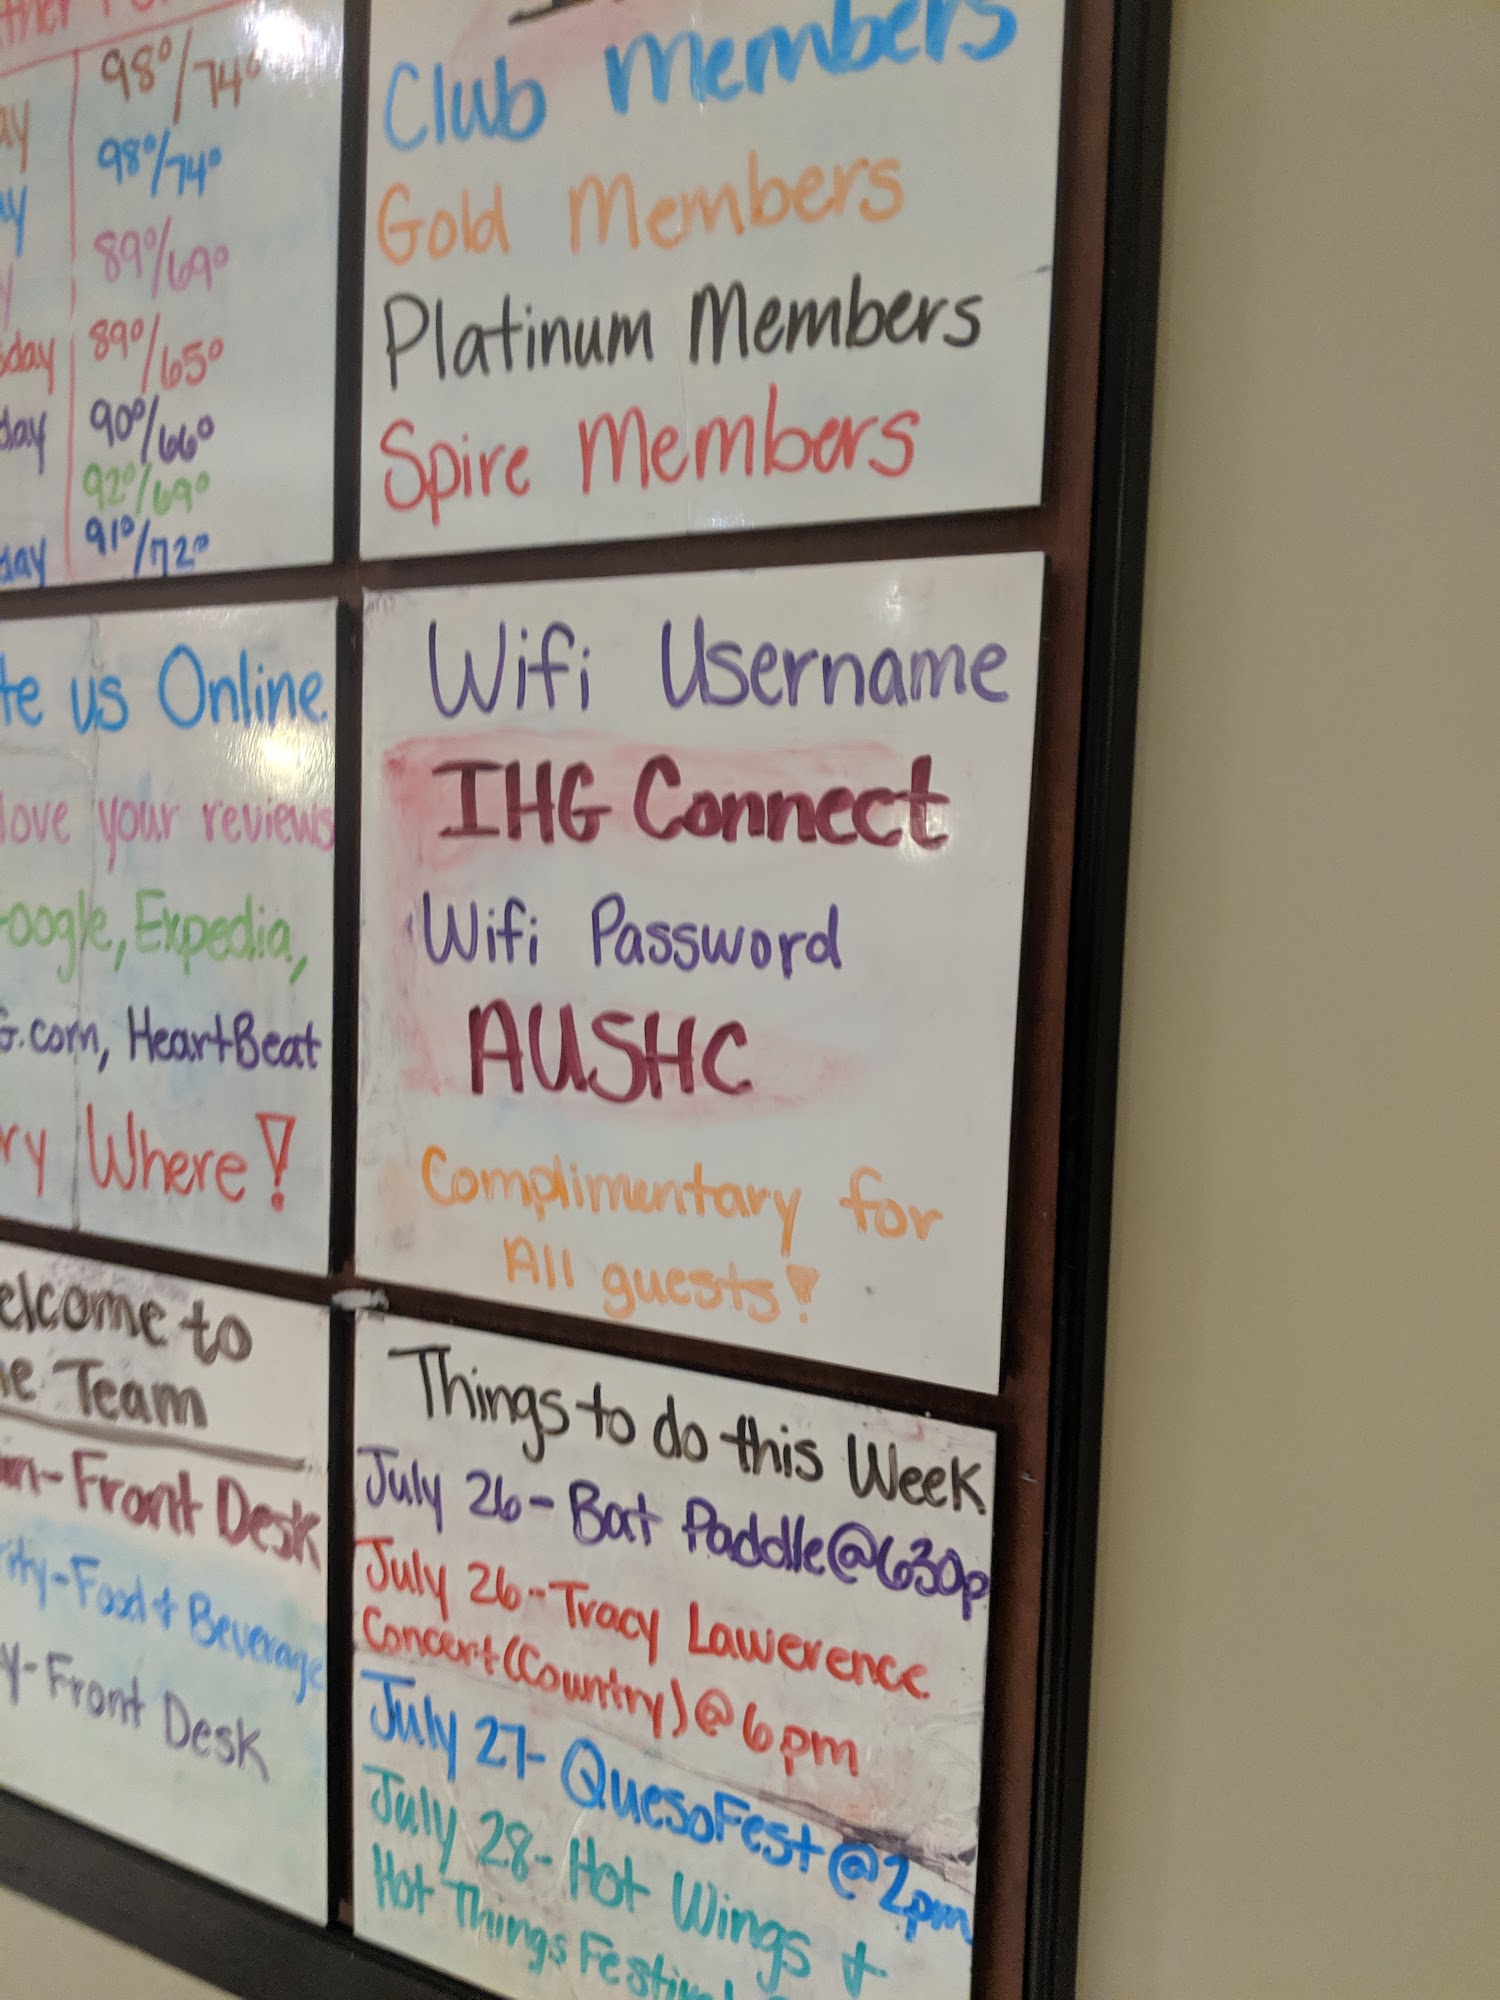 98°/74°
98°/74°
89°/69°
89°/65°
90°/66°
92°/69°
91°/72°
Club Members
Gold Members
Platinum Members
Spire Members
us Online
love your reviews
Expedia,
HeartBeat
Where!
Wifi Username
IHG Connect
Wifi Password
AUSHC
Complimentary for
All guests!
to
Team
Front Desk
Food & Beverage
Front Desk
Things to do this Week
July 26- Bat Paddle@630p
July 26- Tracy Lawerence
Concert (Country) @ 6pm
July 27- QuesoFest @ 2pm
July 28- Hot Wings &
Hot Things